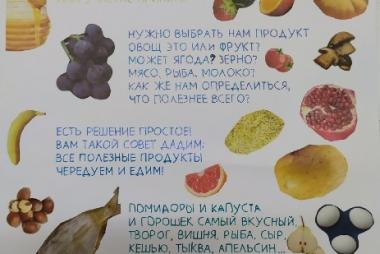 НУЖНО ВЫБРАТЬ НАМ ПРОДУКТ
ОВОЩ ЭТО ИЛИ ФРУКТ?
МОЖЕТ ЯГОДА? ЗЕРНО?
МЯСО, РЫБА, МОЛОКО?
КАК ЖЕ НАМ ОПРЕДЕЛИТЬСЯ,
ЧТО ПОЛЕЗНЕЕ ВСЕГО?
ЕСТЬ РЕШЕНИЕ ПРОСТОЕ!
ВАМ ТАКОЙ СОВЕТ ДАДИМ:
ВСЕ ПОЛЕЗНЫЕ ПРОДУКТЫ
ЧЕРЕДУЕМ И ЕДИМ!
ПОМИДОРЫ И КАПУСТА
И ГОРОШЕК САМЫЙ ВКУСНЫЙ,
ТВОРОГ, ВИШНЯ, РЫБА, СЫР,
КЕШЬЮ, ТЫКВА, АПЕЛЬСИН...